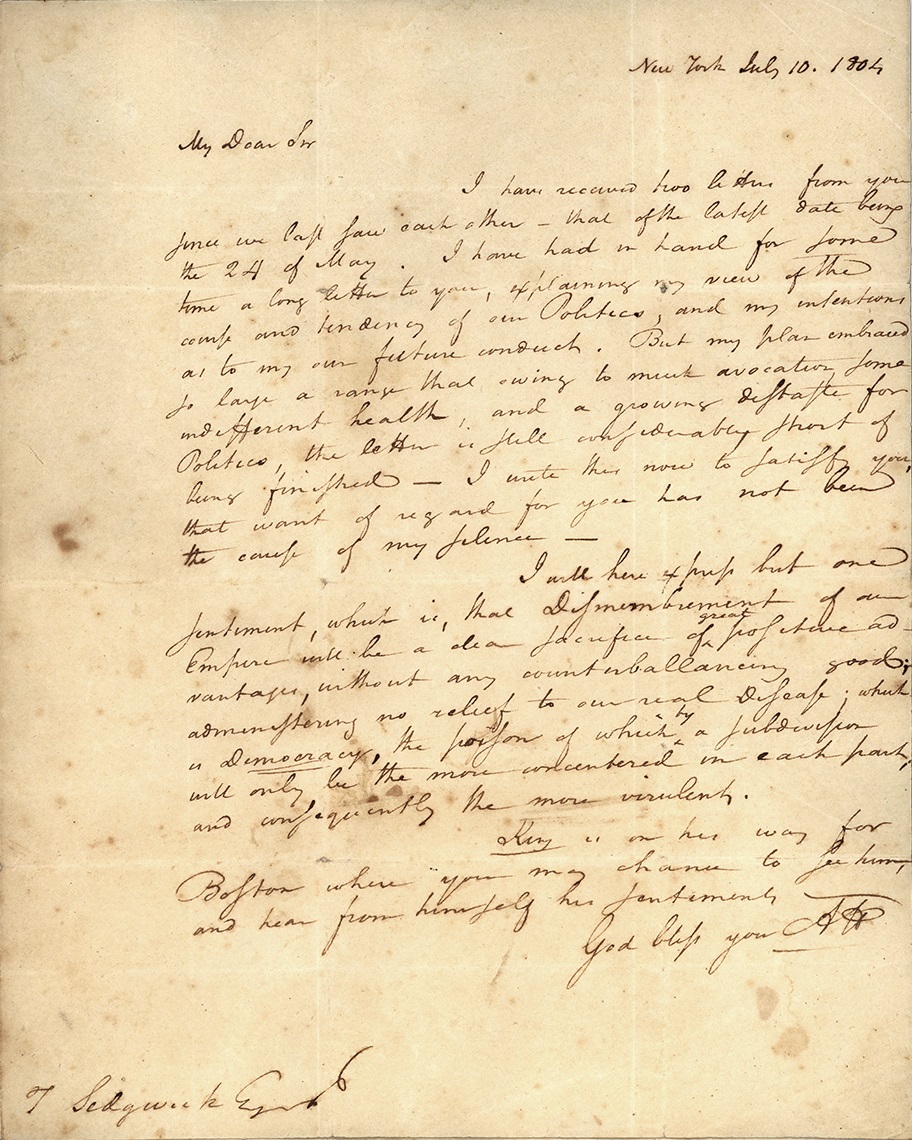 New York July 10. 1804
My Dear Sir
I have received two letters from you
since we last saw each other – that of the latest date being
the 24 of May. I have had in hand for some
time a long letter to you, explaining my view of the
course and tendency of our Politics, and my intentions
as to my own future conduct. But my plan embraced
so large a range that owing to much avocation, some
indifferent health, and a growing distaste for
Politics, the letter is still considerably short of
being finished — I write this now to satisfy you,
that want of regard for you has not been
the cause of my silence —
I will here express but one
sentiment, which is, that Dismembrement of our
great
Empire will be a clear sacrifice of positive ad-
vantages, without any counterballancing good;
administering no relief to our real Disease; which
is Democracy, the poison of which by a subdivision
will only be the more concentered in each part,
and consequently the more virulent.
King is on his way for
Boston where you may chance to see him,
and hear from himself his sentiments
God bless you AH
T Sedgwick Esqr